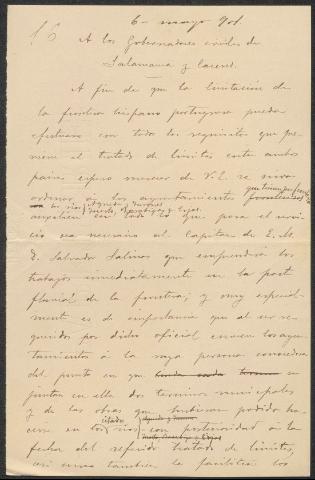 6 - mayo 901.
A los Gobernadores civiles de
Salamanca y Caceres.
A fin de que la limitación de
la frontera hispano portuguesa pueda
efectuarse con todos los requisitos que pre-
viene el tratado de límites entre ambos
paises espero merecer de V.E. se sirva
ordenar á los ayuntamientos que tienen por frontera
los rios Agueda y Duero
auxilien en todo lo que para el servi-
cio sea necesario al Capitan de E. M.
D. Salvador Salinas que emprenderá los
trabajos inmediatamente en la parte
fluvial de la frontera; y muy especial-
mente es de importancia que al ser re-
queridos por dicho oficial envien los ayun-
tamientos á la raya persona conocedora
del punto en que se
juntan en ella dos terminos municipales
y de las obras que hubieran podido ha-
cerse en los citados rios con posterioridad á la
fecha del referido tratado de límites,
así como tambien le faciliten los